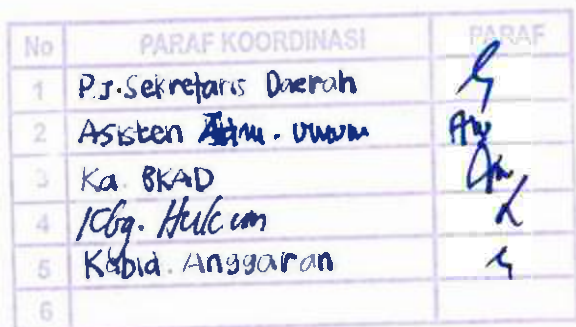 No PARAF KOORDINASI PARAF
1 PJ. Sekretaris Daerah
2 Asisten Adm. Umum
3 Ka. BKAD
4 Kbg. Hukum
5 Kabid. Anggaran
6